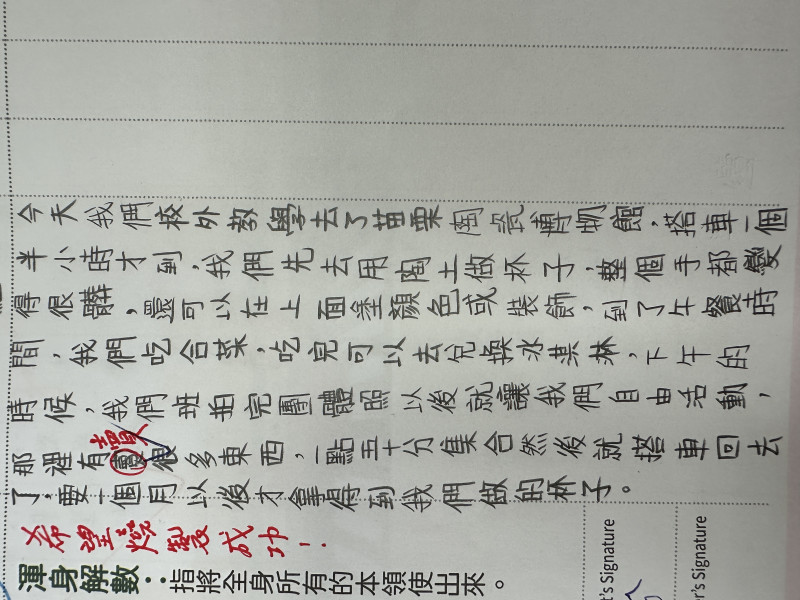 今天我們校外教學去了苗栗陶瓷博物館，搭車一個
半小時才到，我們先去用陶土做杯子，整個手都變
得很髒，還可以在上面塗顏色或裝飾，到了午餐時
間，我們吃合菜，吃完可以去兌換冰淇淋，下午的
時候，我們班拍完團體照以後就讓我們自由活動，
賣
那裡有很多東西，一點五十分集合然後就搭車回去
了，要一個月以後才拿得到我們做的杯子。
希望燒製成功！
渾身解數：指將全身所有的本領使出來。
t's Signature
r's Signature